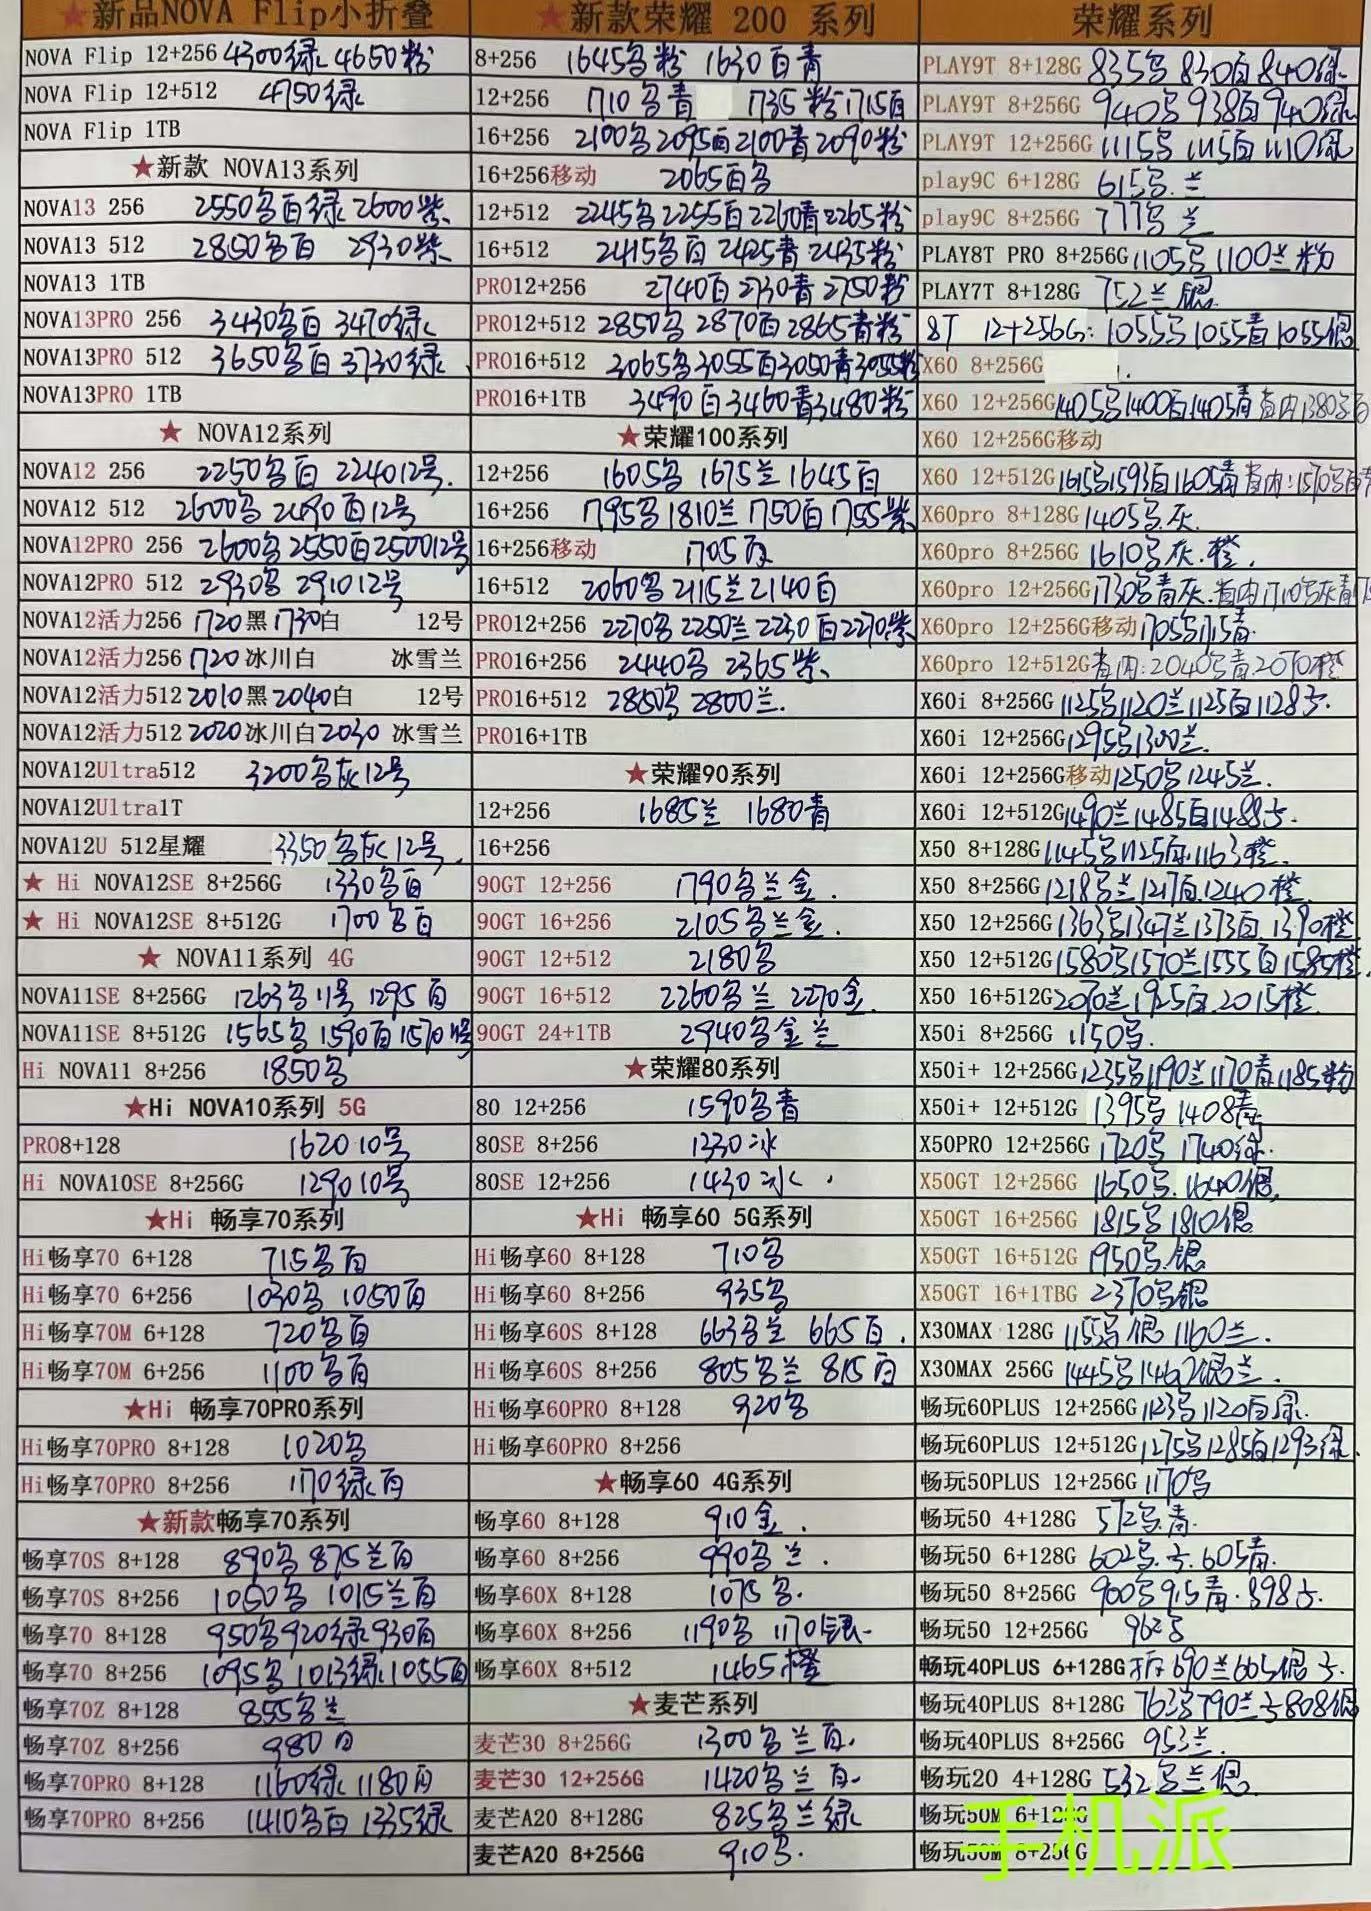 ★新品NOVA Flip小折叠
NOVA Flip 12+256 4300绿 4650粉
NOVA Flip 12+512 4750绿
NOVA Flip 1TB
★新款 NOVA13系列
NOVA13 256 2550名百绿 2600紫
NOVA13 512 2850名百 2930紫
NOVA13 1TB
NOVA13PRO 256 3430名百 3470绿
NOVA13PRO 512 3650名百 3730绿
NOVA13PRO 1TB
★ NOVA12系列
NOVA12 256 2250名百 2240 12号
NOVA12 512 2600名 2490百12号
NOVA12PRO 256 2600名 2550百 2500 12号
NOVA12PRO 512 2930名 2910 12号
NOVA12活力256 1720黑 1730白 12号
NOVA12活力256 1720冰川白 冰雪兰
NOVA12活力512 2010黑 2040白 12号
NOVA12活力512 2020冰川白 2030 冰雪兰
NOVA12Ultra512 3200名灰12号
NOVA12Ultra1T
NOVA12U 512星耀 3350名灰12号
★ Hi NOVA12SE 8+256G 1330名百
★ Hi NOVA12SE 8+512G 1700名百
★ NOVA11系列 4G
NOVA11SE 8+256G 1263名11号 1295百
NOVA11SE 8+512G 1565名 1590百 1570 11号
Hi NOVA11 8+256 1850名
★Hi NOVA10系列 5G
PRO8+128 1620 10号
Hi NOVA10SE 8+256G 1290 10号
★Hi 畅享70系列
Hi畅享70 6+128 715名百
Hi畅享70 6+256 1030名 1050百
Hi畅享70M 6+128 720名百
Hi畅享70M 6+256 1100名百
★Hi 畅享70PRO系列
Hi畅享70PRO 8+128 1020名
Hi畅享70PRO 8+256 1170绿百
★新款畅享70系列
畅享70S 8+128 890名 875兰百
畅享70S 8+256 1050名 1015兰百
畅享70 8+128 950名 920绿 930百
畅享70 8+256 1095名 1013绿 1055百
畅享70Z 8+128 855名兰
畅享70Z 8+256 980白
畅享70PRO 8+128 1160绿 1180白
畅享70PRO 8+256 1410名百 1335绿
★新款荣耀 200 系列
8+256 1645名粉 1630百青
12+256 1710名青 1735粉 1715百
16+256 2100名 2095百 2100青 2090粉
16+256移动 2065百名
12+512 2245名 2255百 2260青 2265粉
16+512 2415名百 2425青 2435粉
PRO12+256 2740百 2730青 2750粉
PRO12+512 2850名 2870百 2865青粉
PRO16+512 3065名 3055百 3050青 3055粉
PRO16+1TB 3490百 3460青 3480粉
★荣耀100系列
12+256 1605名 1675兰 1645百
16+256 1795名 1810兰 1750百 1755紫
16+256移动 1705百
16+512 2060名 2115兰 2140百
PRO12+256 2270名 2250兰 2230百 2270紫
PRO16+256 2440名 2365紫
PRO16+512 2850名 2800兰
PRO16+1TB
★荣耀90系列
12+256 1685兰 1680青
16+256
90GT 12+256 1790名兰金
90GT 16+256 2105名兰金
90GT 12+512 2180名
90GT 16+512 2260名兰 2270金
90GT 24+1TB 2940名金兰
★荣耀80系列
80 12+256 1590名青
80SE 8+256 1330冰
80SE 12+256 1430冰
★Hi 畅享60 5G系列
Hi畅享60 8+128 710名
Hi畅享60 8+256 935名
Hi畅享60S 8+128 663名兰 665百
Hi畅享60S 8+256 805名兰 815百
Hi畅享60PRO 8+128 920名
Hi畅享60PRO 8+256
★畅享60 4G系列
畅享60 8+128 910金
畅享60 8+256 990名兰
畅享60X 8+128 1075名
畅享60X 8+256 1190名 1170银
畅享60X 8+512 1465橙
★麦芒系列
麦芒30 8+256G 1300名兰百
麦芒30 12+256G 1420名兰百
麦芒A20 8+128G 825名兰绿
麦芒A20 8+256G 910名
荣耀系列
PLAY9T 8+128G 835名 830百 840绿
PLAY9T 8+256G 940名 938百 940绿
PLAY9T 12+256G 1115名 1115百 1110绿
play9C 6+128G 615名.兰
play9C 8+256G 777名兰
PLAY8T PRO 8+256G 1105名 1100兰粉
PLAY7T 8+128G 752兰银
8T 12+256G: 1055名 1055青 1055银
X60 8+256G
X60 12+256G 1405名 1400百 1405青 省内1380名百
X60 12+256G移动
X60 12+512G 1615名 1593百 1605青 省内:1570名百青
X60pro 8+128G 1405名.灰
X60pro 8+256G 1610名灰.橙
X60pro 12+256G 1730名青灰.省内1710名灰青
X60pro 12+256G移动 1705名 1715青
X60pro 12+512G 省内:2040名青.2070橙
X60i 8+256G 1125名 1120兰 1125百 1128云
X60i 12+256G 1295名 1300兰
X60i 12+256G移动 1250名 1245兰
X60i 12+512G 1490兰 1485百 1488云
X50 8+128G 1145名 1125百 1163橙
X50 8+256G 1218名兰 1217百 1240橙
X50 12+256G 1363名 1347兰 1373百 1390橙
X50 12+512G 1580名 1570兰 1555百 1585橙
X50 16+512G 2070兰 1925百 2015橙
X50i 8+256G 1150名
X50i+ 12+256G 1235名 1190兰 1170青 1185粉
X50i+ 12+512G 1395名 1408青
X50PRO 12+256G 1720名 1740绿
X50GT 12+256G 1650名 1640银
X50GT 16+256G 1815名 1810银
X50GT 16+512G 1950名银
X50GT 16+1TBG 2370名银
X30MAX 128G 1155名银 1160兰
X30MAX 256G 1445名 1462银兰
畅玩60PLUS 12+256G 1123名 1120百绿
畅玩60PLUS 12+512G 1275名 1285百 1293绿
畅玩50PLUS 12+256G 1170名
畅玩50 4+128G 572名.青
畅玩50 6+128G 602名.云.605青
畅玩50 8+256G 900名 915青.898云
畅玩50 12+256G 962名
畅玩40PLUS 6+128G 690兰 665银云
畅玩40PLUS 8+128G 763名 790兰云 808银
畅玩40PLUS 8+256G 953兰
畅玩20 4+128G 532名兰银
畅玩50M 6+128G
畅玩50M 8+256G
手机派